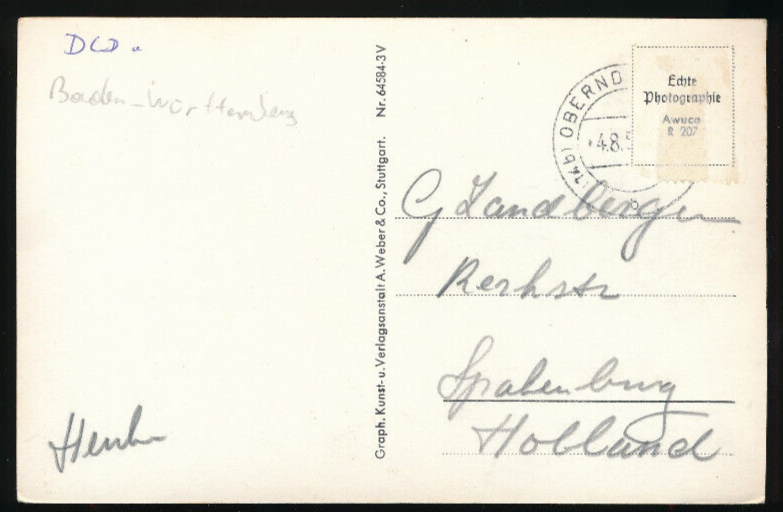 Baden-Württemberg
Graph. Kunst- u. Verlagsanstalt A. Weber & Co., Stuttgart. Nr. 64584-3 V
(14b) OBERND
4.8.5
b
Echte
Photographie
Awuco
R 207
G Zandbergen
Kerkstr
Spakenburg
Holland
Henk